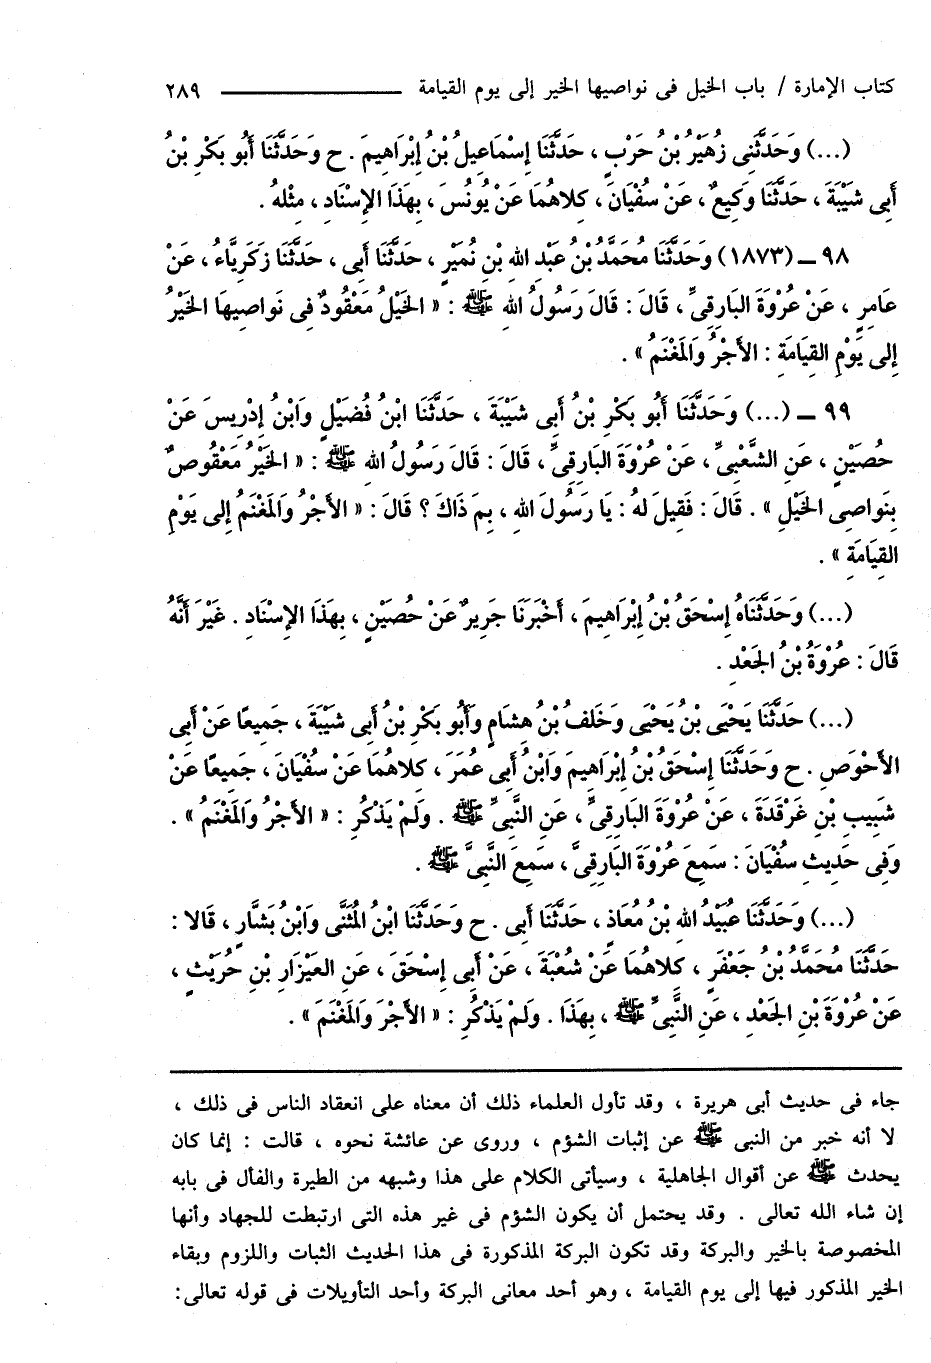 كتاب الإمارة / باب الخيل فى نواصيها الخير إلى يوم القيامة ــــــــــ ٢٨٩
(...) وَحَدَّثَنِى زُهَيْرُ بْنُ حَرْبٍ ، حَدَّثَنَا إِسْمَاعِيلُ بْنُ إِبْرَاهِيمَ . ح وَحَدَّثَنَا أَبُو بَكْرِ بْنُ
أَبِى شَيْبَةَ ، حَدَّثَنَا وَكِيعٌ ، عَنْ سُفْيَانَ ، كِلاهُمَا عَنْ يُونُسَ ، بِهَذَا الإِسْنَادِ ، مِثْلهُ .
٩٨ ــ (١٨٧٣) وَحَدَّثَنَا مُحَمَّدُ بْنُ عَبْدِ اللهِ بْنِ نُمَيْرٍ ، حَدَّثَنَا أَبِى ، حَدَّثَنَا زَكَرِيَّاءُ ، عَنْ
عَامِرٍ ، عَنْ عُرْوَةَ البَارِقِىِّ ، قَالَ : قَالَ رَسُولُ اللهِ ﷺ : « الخَيْلُ مَعْقُودٌ فِى نَوَاصِيهَا الخَيْرُ
إِلى يَوْمِ القِيَامَةِ : الأَجْرُ وَالمَغْنَمُ » .
٩٩ ــ (...) وَحَدَّثَنَا أَبُو بَكْرِ بْنُ أَبِى شَيْبَةَ ، حَدَّثَنَا ابْنُ فُضَيْلٍ وَابْنُ إِدْرِيسَ عَنْ
حُصَيْنٍ ، عَنِ الشَّعْبِىِّ ، عَنْ عُرْوَةَ البَارِقِىِّ ، قَالَ : قَالَ رَسُولُ اللهِ ﷺ : « الخَيْرُ مَعْقُوصٌ
بِنَوَاصِى الخَيْلِ » . قَالَ : فَقِيلَ لهُ : يَا رَسُولَ اللهِ ، بِمَ ذَاكَ ؟ قَالَ : « الأَجْرُ وَالمَغْنَمُ إِلى يَوْمِ
القِيَامَةِ » .
(...) وَحَدَّثَنَاهُ إِسْحَقُ بْنُ إِبْرَاهِيمَ ، أَخْبَرَنَا جَرِيرٌ عَنْ حُصَيْنٍ ، بِهَذَا الإِسْنَادِ . غَيْرَ أَنَّهُ
قَالَ : عُرْوَةُ بْنُ الجَعْدِ .
(...) حَدَّثَنَا يَحْيَى بْنُ يَحْيَى وَخَلفُ بْنُ هِشَامٍ وَأَبُو بَكْرِ بْنُ أَبِى شَيْبَةَ ، جَمِيعًا عَنْ أَبِى
الأَحْوَصِ . ح وَحَدَّثَنَا إِسْحَقُ بْنُ إِبْرَاهِيمَ وَابْنُ أَبِى عُمَرَ ، كِلاهُمَا عَنْ سُفْيَانَ ، جَمِيعًا عَنْ
شَبِيبِ بْنِ غَرْقَدَةَ ، عَنْ عُرْوَةَ البَارِقِىِّ ، عَنِ النَّبِىِّ ﷺ . وَلمْ يَذْكُرِ : « الأَجْرُ وَالمَغْنَمُ » .
وَفِى حَدِيثِ سُفْيَانَ : سَمِعَ عُرْوَةَ البَارِقِىَّ ، سَمِعَ النَّبِىَّ ﷺ .
(...) وَحَدَّثَنَا عُبَيْدُ اللهِ بْنُ مُعَاذٍ ، حَدَّثَنَا أَبِى . ح وَحَدَّثَنَا ابْنُ المُثَنَّى وَابْنُ بَشَّارٍ ، قَالا :
حَدَّثَنَا مُحَمَّدُ بْنُ جَعْفَرٍ ، كِلاهُمَا عَنْ شُعْبَةَ ، عَنْ أَبِى إِسْحَقَ ، عَنِ العَيْزَارِ بْنِ حُرَيْثٍ ،
عَنْ عُرْوَةَ بْنِ الجَعْدِ ، عَنِ النَّبِىِّ ﷺ ، بِهَذَا . وَلمْ يَذْكُرِ : « الأَجْرَ وَالمَغْنَمَ » .
جاء فى حديث أبى هريرة ، وقد تأول العلماء ذلك أن معناه على انعقاد الناس فى ذلك ،
لا أنه خبر من النبى ﷺ عن إثبات الشؤم ، وروى عن عائشة نحوه ، قالت : إنما كان
يحدث ﷺ عن أقوال الجاهلية ، وسيأتى الكلام على هذا وشبهه من الطيرة والفأل فى بابه
إن شاء الله تعالى . وقد يحتمل أن يكون الشؤم فى غير هذه التى ارتبطت للجهاد وأنها
المخصوصة بالخير والبركة وقد تكون البركة المذكورة فى هذا الحديث الثبات واللزوم وبقاء
الخير المذكور فيها إلى يوم القيامة ، وهو أحد معانى البركة وأحد التأويلات فى قوله تعالى: